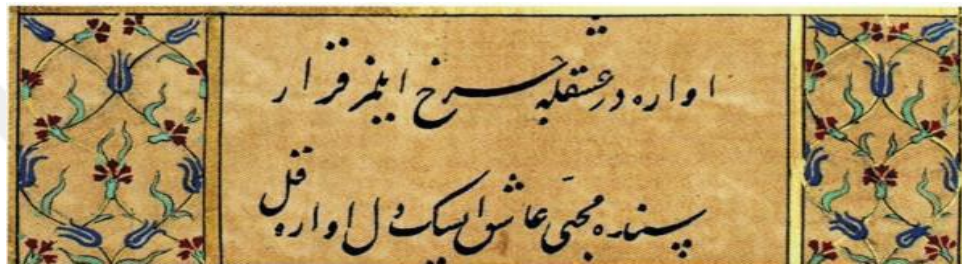 اواره در عشقله چرخ ايلمز قرار
سنده محبی عاشق ايسك دل اواره قل